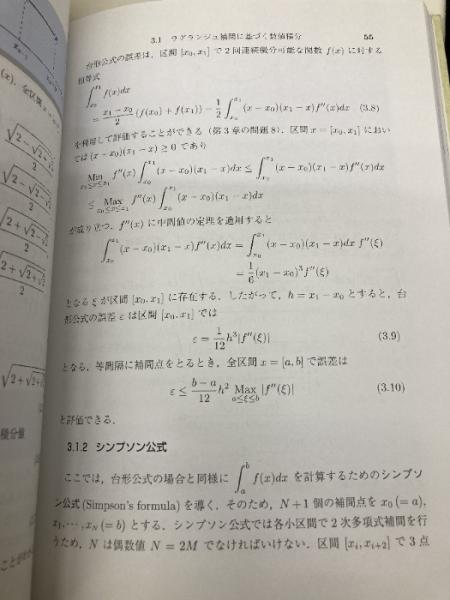 3.1 ラグランジュ補間に基づく数値積分 55
台形公式の誤差は，区間 [x₀, x₁] で 2 回連続微分可能な関数 f(x) に対する
恒等式
∫_{x₀}^{x₁} f(x)dx
= (x₁ − x₀)/2 (f(x₀) + f(x₁)) − 1/2 ∫_{x₀}^{x₁} (x − x₀)(x₁ − x)f″(x)dx (3.8)
を利用して評価することができる (第 3 章の問題 8)．区間 x = [x₀, x₁] におい
ては (x − x₀)(x₁ − x) ≥ 0 であり
Min_{x₀≤x≤x₁} f″(x) ∫_{x₀}^{x₁} (x − x₀)(x₁ − x)dx ≤ ∫_{x₀}^{x₁} (x − x₀)(x₁ − x)f″(x)dx
≤ Max_{x₀≤x≤x₁} f″(x) ∫_{x₀}^{x₁} (x − x₀)(x₁ − x)dx
が成り立つ．f″(x) に中間値の定理を適用すると
∫_{x₀}^{x₁} (x − x₀)(x₁ − x)f″(x)dx = ∫_{x₀}^{x₁} (x − x₀)(x₁ − x)dx f″(ξ)
= 1/6 (x₁ − x₀)³f″(ξ)
となる ξ が区間 [x₀, x₁] に存在する．したがって，h = x₁ − x₀ とすると，台
形公式の誤差 ε は区間 [x₀, x₁] では
ε = 1/12 h³|f″(ξ)| (3.9)
となる．等間隔に補間点をとるとき，全区間 x = [a, b] で誤差は
ε ≤ (b − a)/12 h² Max_{a≤ξ≤b} |f″(ξ)| (3.10)
と評価できる．
3.1.2 シンプソン公式
ここでは，台形公式の場合と同様に ∫_{a}^{b} f(x)dx を計算するためのシンプソ
ン公式 (Simpson's formula) を導く．そのため，N + 1 個の補間点を x₀ (= a),
x₁, ⋯, x_N (= b) とする．シンプソン公式では各小区間で 2 次多項式補間を行
うため，N は偶数値 N = 2M でなければいけない．区間 [x_i, x_{i+2}] で 3 点
積分値